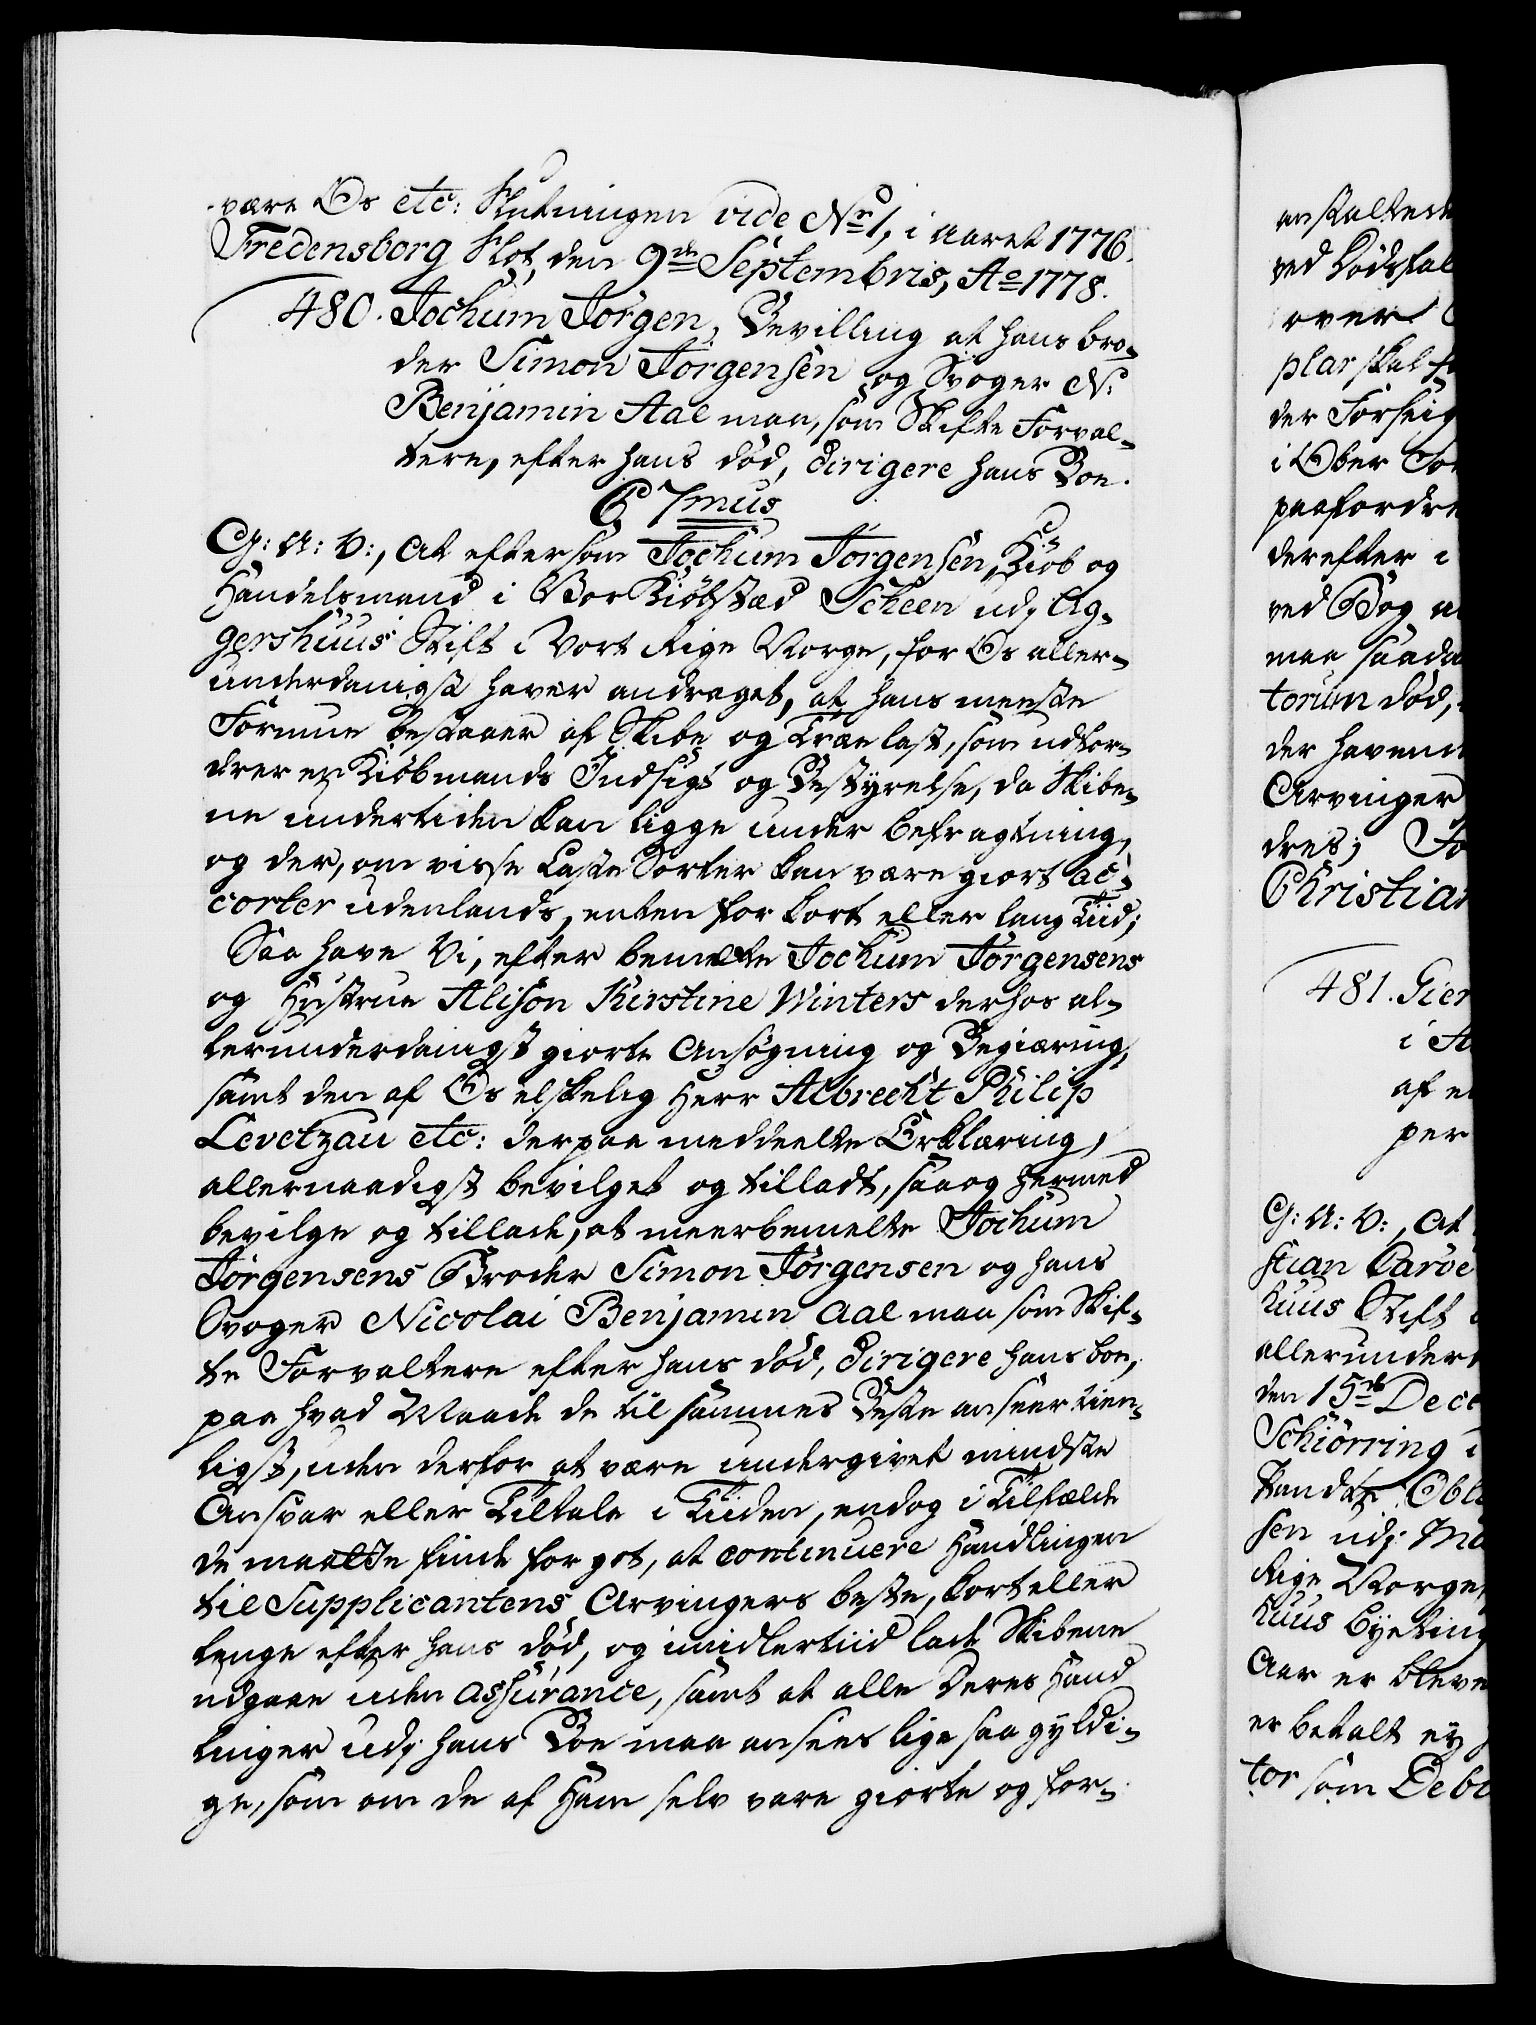 være Os etc: Slutningen vide No 1, i Aaret 1776.
Fredensborg Slot, den 9de Septembris, Ao 1778.
480. Jochum Jørgen, Bevilling at hans bro-
der Simon Jørgensen og Svoger N:
Benjamin Aal maa, som Skifte Forval-
tere, efter hans død, dirigere hans Boe.
C 7mus
G: A: V:, At eftersom Jochum Jørgensen, Kiøb og
Handelsmand i Vor Kiøbstæd Scheen udj Ag-
gershuus Stift i Vort Rige Norge, for Os aller-
underdanigst haver andraget, at hans meeste
Formue bestaaer af Skibe og Trælast, som udfor-
drer en Kiøbmands Indsigt og Bestyrelse, da Skibe-
ne undertiden kan ligge under befragtning,
og der, om visse Laste Sorter kan være giort ac-
corter udenlands, enten for kort eller lang Tiid;
Saa have Vi, efter bemelte Jochum Jørgensens
og Hustrue Alison Kirstine Winters derhos al-
lerunderdanigst giorte Ansøgning og Begiæring,
samt den af Os elskelig Herr Albrecht Philip
Levetzau etc: derpaa meddeelte Erklæring,
allernaadigst bevilget og tilladt, saa og hermed
bevilge og tillade, at meerbemelte Jochum
Jørgensens Broder Simon Jørgensen og hans
Svoger Nicolai Benjamin Aal maa som Skif-
te Forvaltere efter hans død, dirigere hans boe,
paa hvad Maade de til sammes Beste anseer tien-
ligst, uden derfor at være undergivet mindste
Ansvar eller Tiltale i Tiiden, endog i Tilfælde
de maatte finde for got, at continuere Handlingen
til Supplicantens Arvingers beste, kort eller
lenge efter hans død, og imidlertiid lade Skibene
udgaae uden assurance, samt at alle deres Hand
linger udj hans Boe maa ansees lige saa gyldi-
ge, som om de af Ham selv vare giorte og for-
anstaltede
ved Dødsfal
over
plar skal
der Forseig
i Ober
paafordre
derefter i
ved Bog
maa saada
torum død,
der havend
Arvinger
dres; Fo
Christian
481. Gier
i A
af
per
G: A: V:, At
stian
huus Stift
allerunder
den 15de Dece
Schiørring
Obli
sen udj
Rige Norge,
huus
Aar er bleve
er betalt ey
tor som Debi